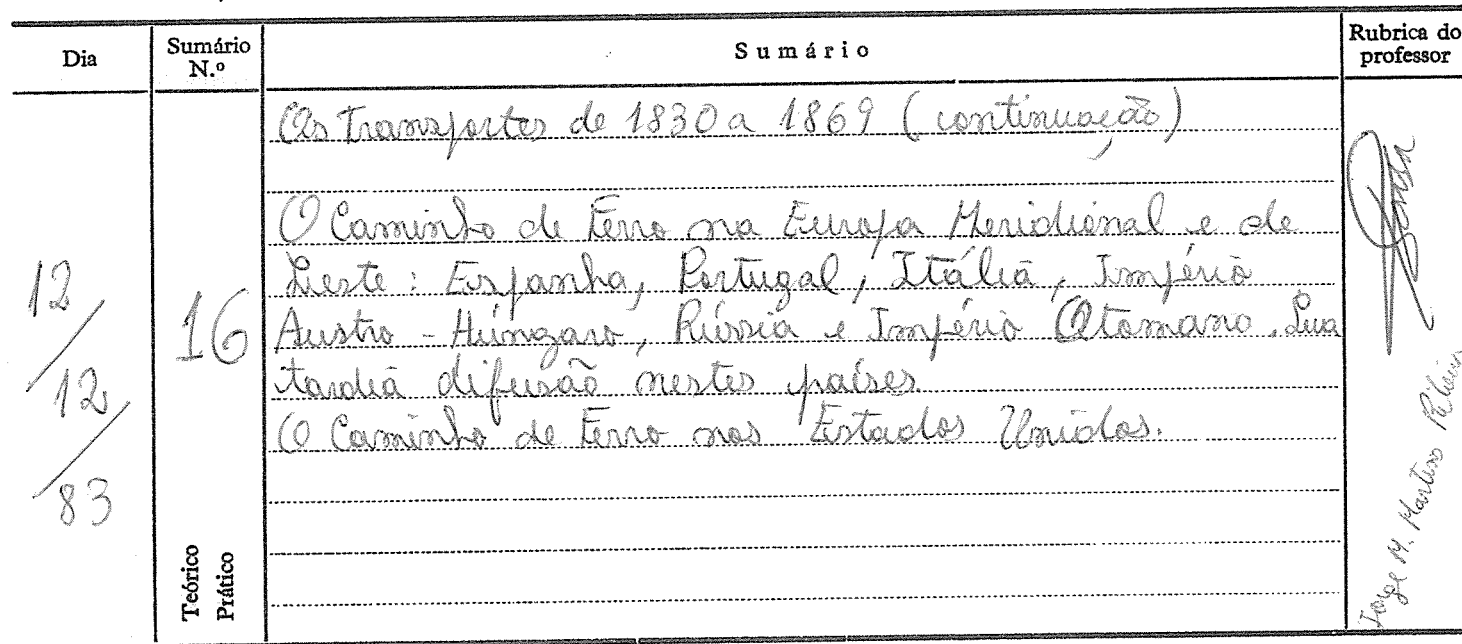 Dia
Sumário N.º
Sumário
Rubrica do professor
12/12/83
16
Teórico
Prático
Os Transportes de 1830 a 1869 (continuação)
O Caminho de Ferro na Europa Meridional e de
Leste: Espanha, Portugal, Itália, Império
Austro-Húngaro, Rússia e Império Otomano. Sua
tardia difusão nestes países.
O Caminho de Ferro nos Estados Unidos.
Jorge M. Martins Ribeiro